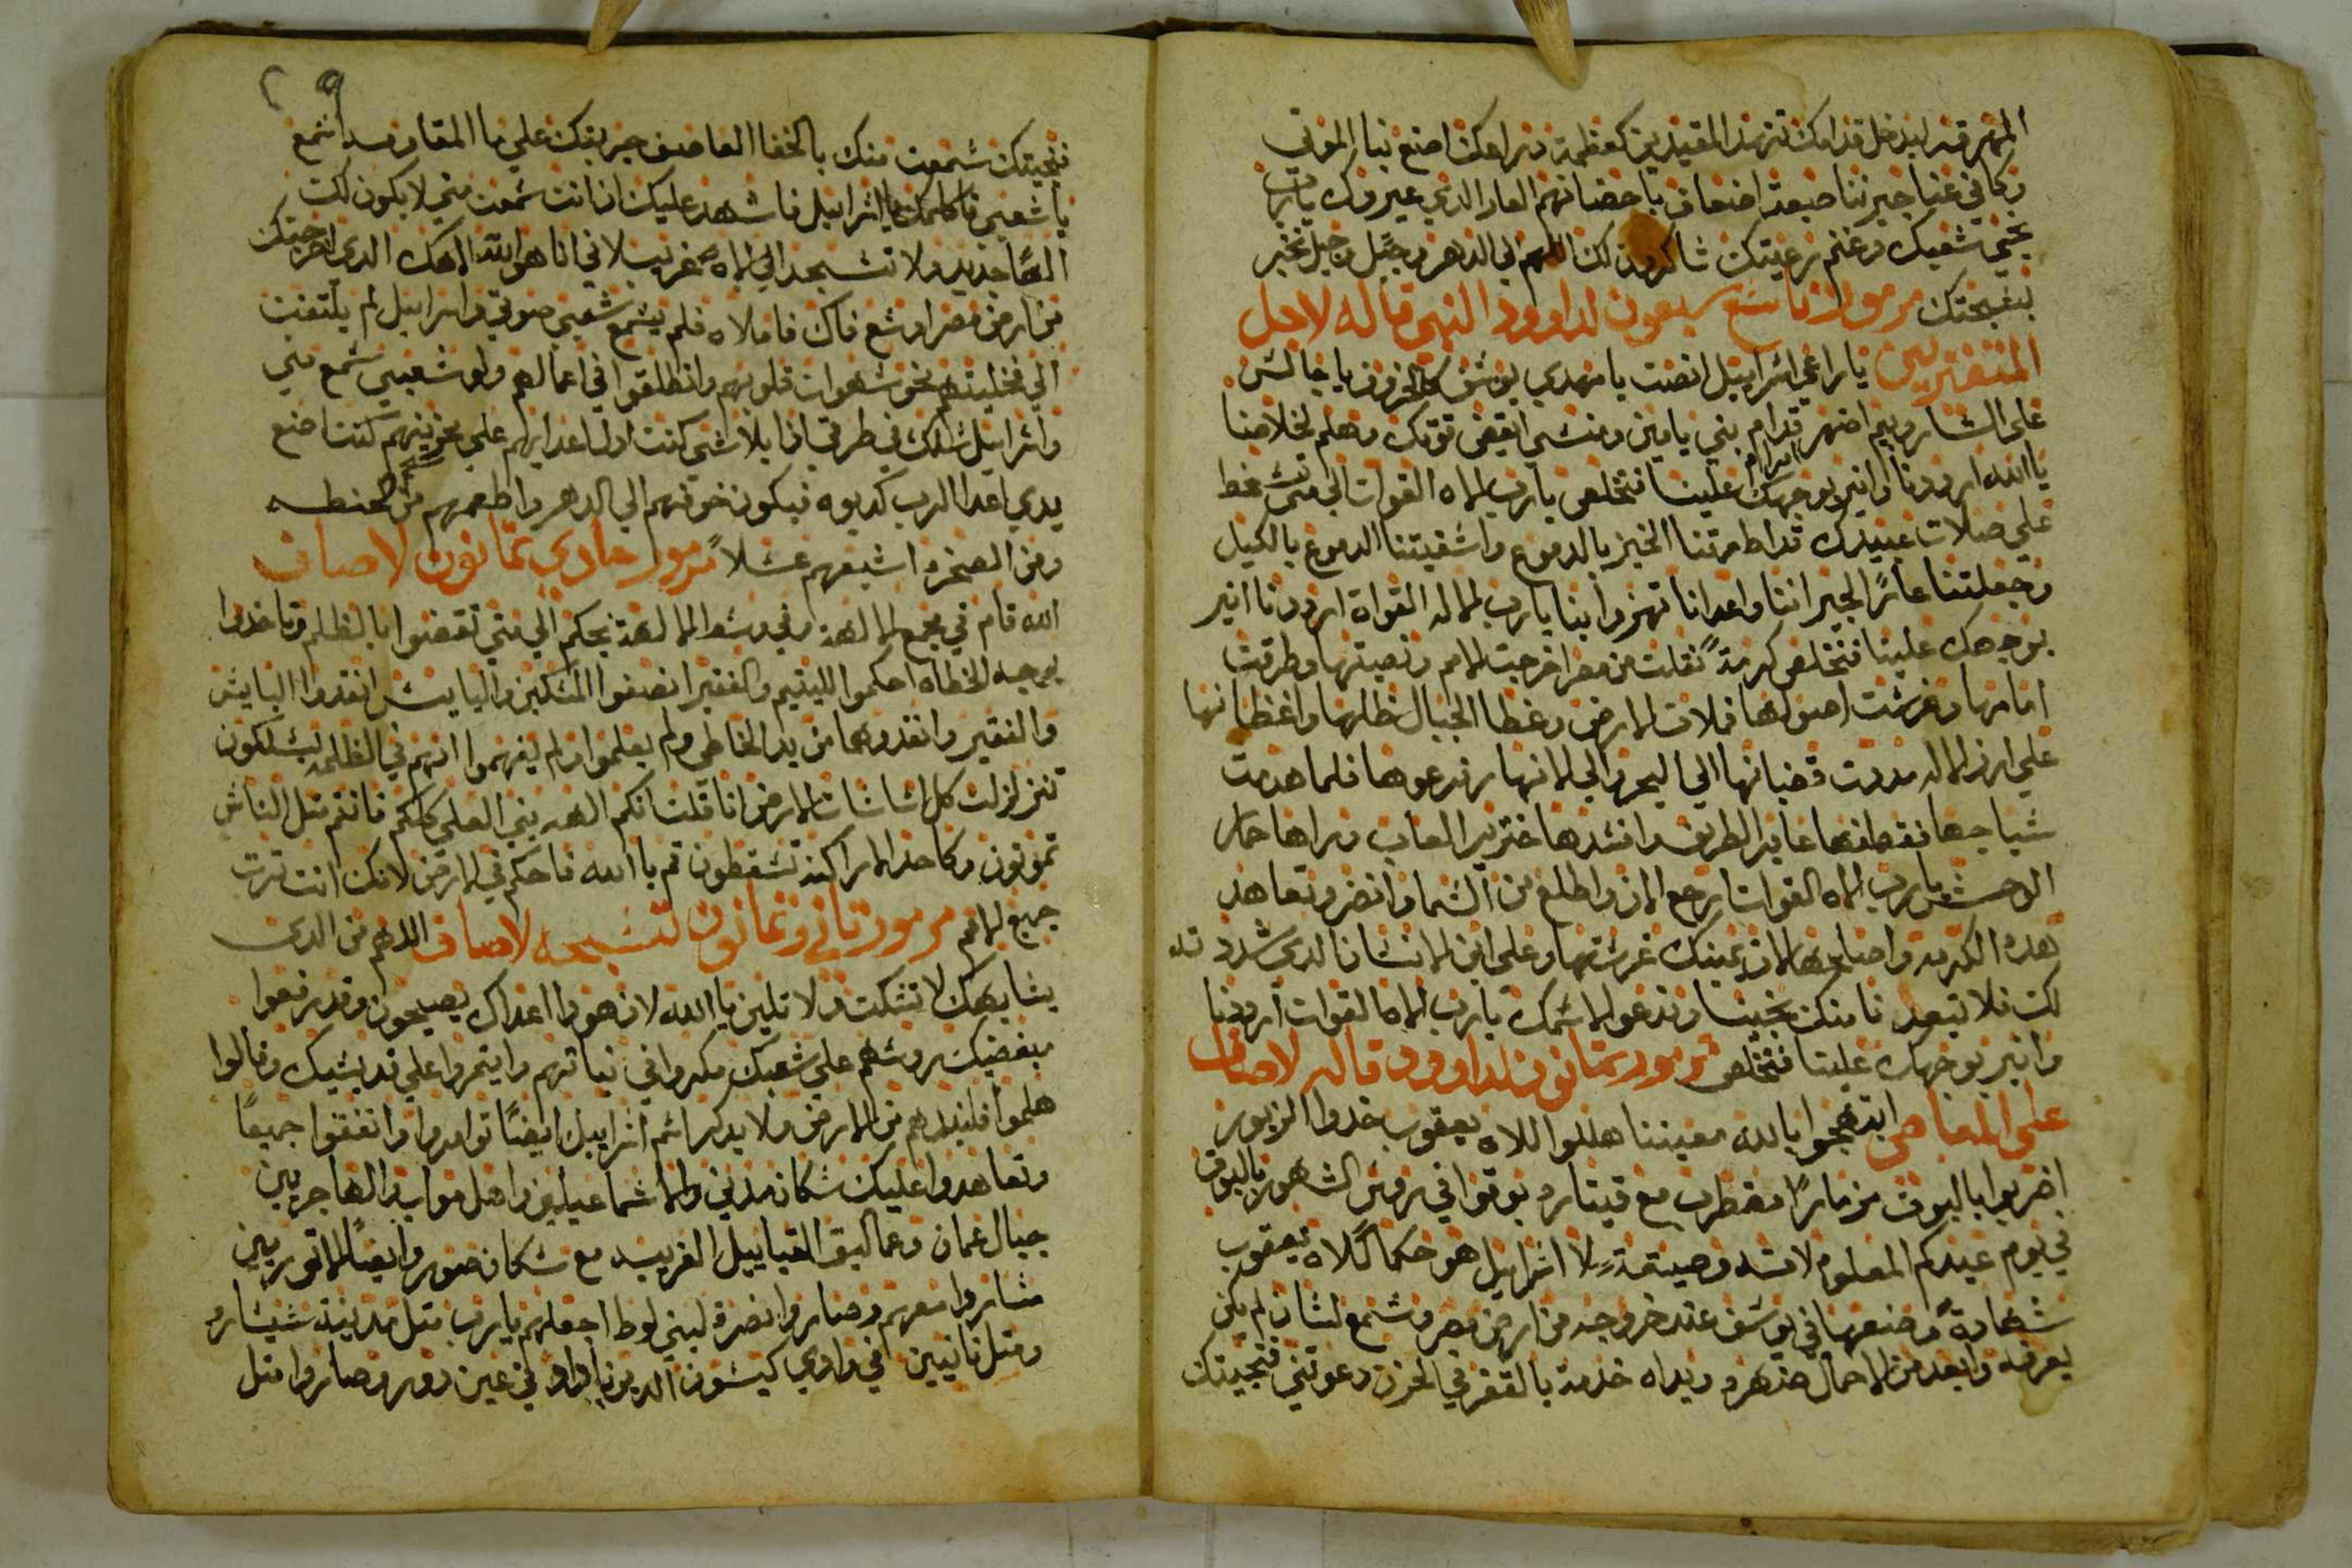 المهرقه ليدخل قدامك تنهد المقيدين كعظمة دراعك اصنع بنا الموتى
وكافي عنا جيرننا سبعة اضعاف باحضانهم العار الدي عيروك يارب
نحن شعبك وغنم رعيتك شاكرون لك اللهم الى الدهر وجيل وجيل نخبر
بتسبحتك مزمور تاسع وسبعون لداوود النبي قاله لاجل
المتغيرين يا راعي اسراييل انصت يا مهدي يوسف كالخروف يا جالس
على الشاروبيم اضهر قدام ابرام بني يامين ومنسى ايقض قوتك وهلم لخلاصنا
يا الله ارددنا وانير بوجهك علينا فنتخلص يارب الاه القوات الى متى تسخط
على صلات عبيدك قد اطعمتنا الخبز بالدموع واسقيتنا الدموع بالكيل
وجعلتنا عارًا لجيراننا واعدانا تهزوا بنا يارب الاله القواة ارددنا انير
بوجهك علينا فنتخلص كرمةً نقلت من مصر اخرجت الامم ونصبتها وطرقت
امامها وغرست اصولها فملات الارض وغطا الجبال ظلها واغظانها
على ارز الاله مددت قضبانها الى البحر والى الانهار فروعها فلما هدمت
سياجها فقطفها عابر الطريق وافسدها خنزير الغاب ورعاها حمار
الوحش يارب الاه القوات ارجع الان واطلع من السما وانضر وتعاهد
هده الكرمه واصلحها الان يمينك غرستها وعلى ابن الانسان الدي شددته
لك فلا تبعد نا منك تحيينا وندعوا لاسمك يارب الاه القوات ارددنا
وانير بوجهك علينا فنتخلص مزمور ثمانون لداوود قاله لاصاف
على المعاصي ابتهجوا بالله معيننا هللوا للاه يعقوب خدوا الزبور
اضربوا بالبوق مزمارًا مضطرب مع قيتاره بوقوا في روس الشهور بالبوق
في يوم عيدكم المعلوم لانه وصيةٌ لاسراييل هو حكما لالاه يعقوب
شهادةً وضعها في يوسف عند خروجه من ارض مصر وسمع لسان لم يكن
يعرفه وابعد من الاحمال ضهره ويداه خدمة بالقفر في الحزن دعوتني فنجيتك
فنجيتك سمعت منك بالخفا العاصف جربتك على ما المقاومه اسمع
يا شعبي فاكلمك يا اسراييل فاشهد عليك ان انت سمعت مني لا يكون لك
الهًا جديد ولا تسجد الى الاه غريب لاني انا هو الله الاهك الدي اخرجتك
من ارض مصر اوسع فاك فاملاه فلم يسمع شعبي صوتي واسراييل لم يلتفت
الي فخليتهم نحو شهوات قلوبهم وانطلقوا في اعمالهم ولو شعبي سمع مني
واسراييل سلك في طرقي ادا بلا شي كنت ادل اعدايهم على محزنيهم كنت اضع
يدي اعدا الرب كدبوه فيكون خوفهم الى الدهر واطعمهم من شحم الحنطه
ومن الصخره اشبعهم عسلاً مزمور حادي ثمانون لاصاف
الله قام في مجمع الالهة وفي وسط الالهة يحكم الى متى تقضوا بالظلم وتاخدوا
بوجه الخطاه احكموا لليتيم والفقير انصفوا المسكين والبايس انقدوا البايس
والفقير وانقدوهما من يد الخاطي ولم يعلموا ولم يفهموا انهم في الظلمه يسلكون
تتزلزلت كل اساسات الارض انا قلت انكم الهه بني العلي كلكم فانتم متل الناس
تموتون وكاحد الاراكنه تسقطون قم يا الله فاحكم في الارض لانك انت ترت
جميع الامم مزمور تاني وثمانون لتسبحه لاصاف اللهم من الدي
يشابهك لا تسكت ولا تلين يا الله لان هودا اعداك يصيحون وقد رفعوا
مبغضيك روسهم على شعبك مكروا في نياتهم وايتمروا على قديسيك وقالوا
هلموا فلنبيدهم من الارض ولا يدكر اسم اسراييل ايضًا توامروا واتفقوا جميعًا
وتعاهدوا عليك سكان مدني والاسماعيليين واهل مواب والهاجريين
جبال عمان وعماليق القباييل الغريبه مع سكان صور وايضًا الاتوريين
ساروا معهم وصاروا نصرة لبني لوط اجعلهم يارب متل مدينة سيساره
ومتل نابين في وادي كيسون الدين بادوا في عين دور وصاروا متل